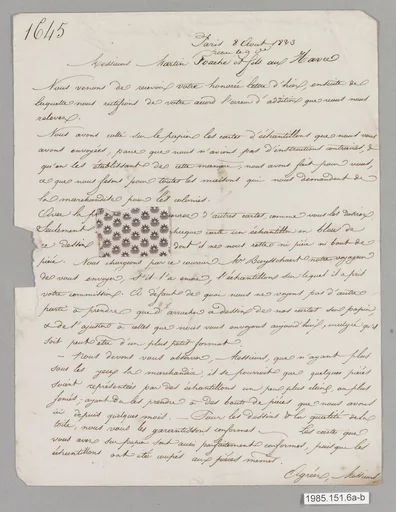 1645
Paris 8 Aout 1823
Messieurs Martin Foache et fils au Havre
Nous venons de recevoir votre honorée lettre d'hier, ensuite de
laquelle nous rectifions de votre accord l'erreur d'addition que vous nous
relevez.
Nous avons collé sur le papier les cartes d'échantillons que nous vous
avons envoyées, parce que nous n'avions pas d'instructions contraires &
qu'en les établissant de cette manière, nous avons fait pour vous,
ce que nous faisons pour toutes les maisons qui nous demandent de
la marchandise pour les colonies.
d'autres cartes, comme vous les desirez
Seulement chaque carte un échantillon en bleu de
ce dessin dont il ne nous reste ni pièce ni bout de
pièce. Nous chargeons par ce courrier Mr notre voyageur
de vous envoyer, s'il l'a encore, l'échantillon sur lequel il a pris
votre commission. A défaut de quoi nous ne voyons pas d'autre
parti à prendre que d'arracher ce dessin de nos cartes sur papier
& de l'ajouter à celles que nous vous envoyons aujourd'hui, malgré qu'il
soit peut être d'un plus petit format.
— Nous devons vous observer, Messieurs, que n'ayant plus
sous les yeux la marchandise, il se pourrait que quelques pièces
soient représentées par des échantillons un peu plus clairs, ou plus
foncés; ayant dû les prendre à des bouts de pièces que nous avons
ici depuis quelques mois. — Pour les dessins & la qualité de la
toile, nous vous les garantissons conformes — les cartes que
vous avez sur papier sont aussi parfaitement conformes, puisque les
échantillons ont été coupés aux pièces mêmes.
Agréez, Messieurs
1985.151.6a-b